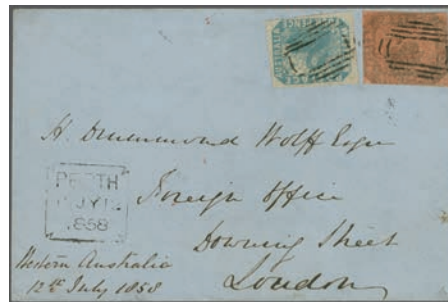 POSTAGE
AUSTRALIA
H. Drummond Wolff Esqre
PERTH
JY 12
1858
Foreign Office
Downing Street
London
Western Australia
12th July 1858